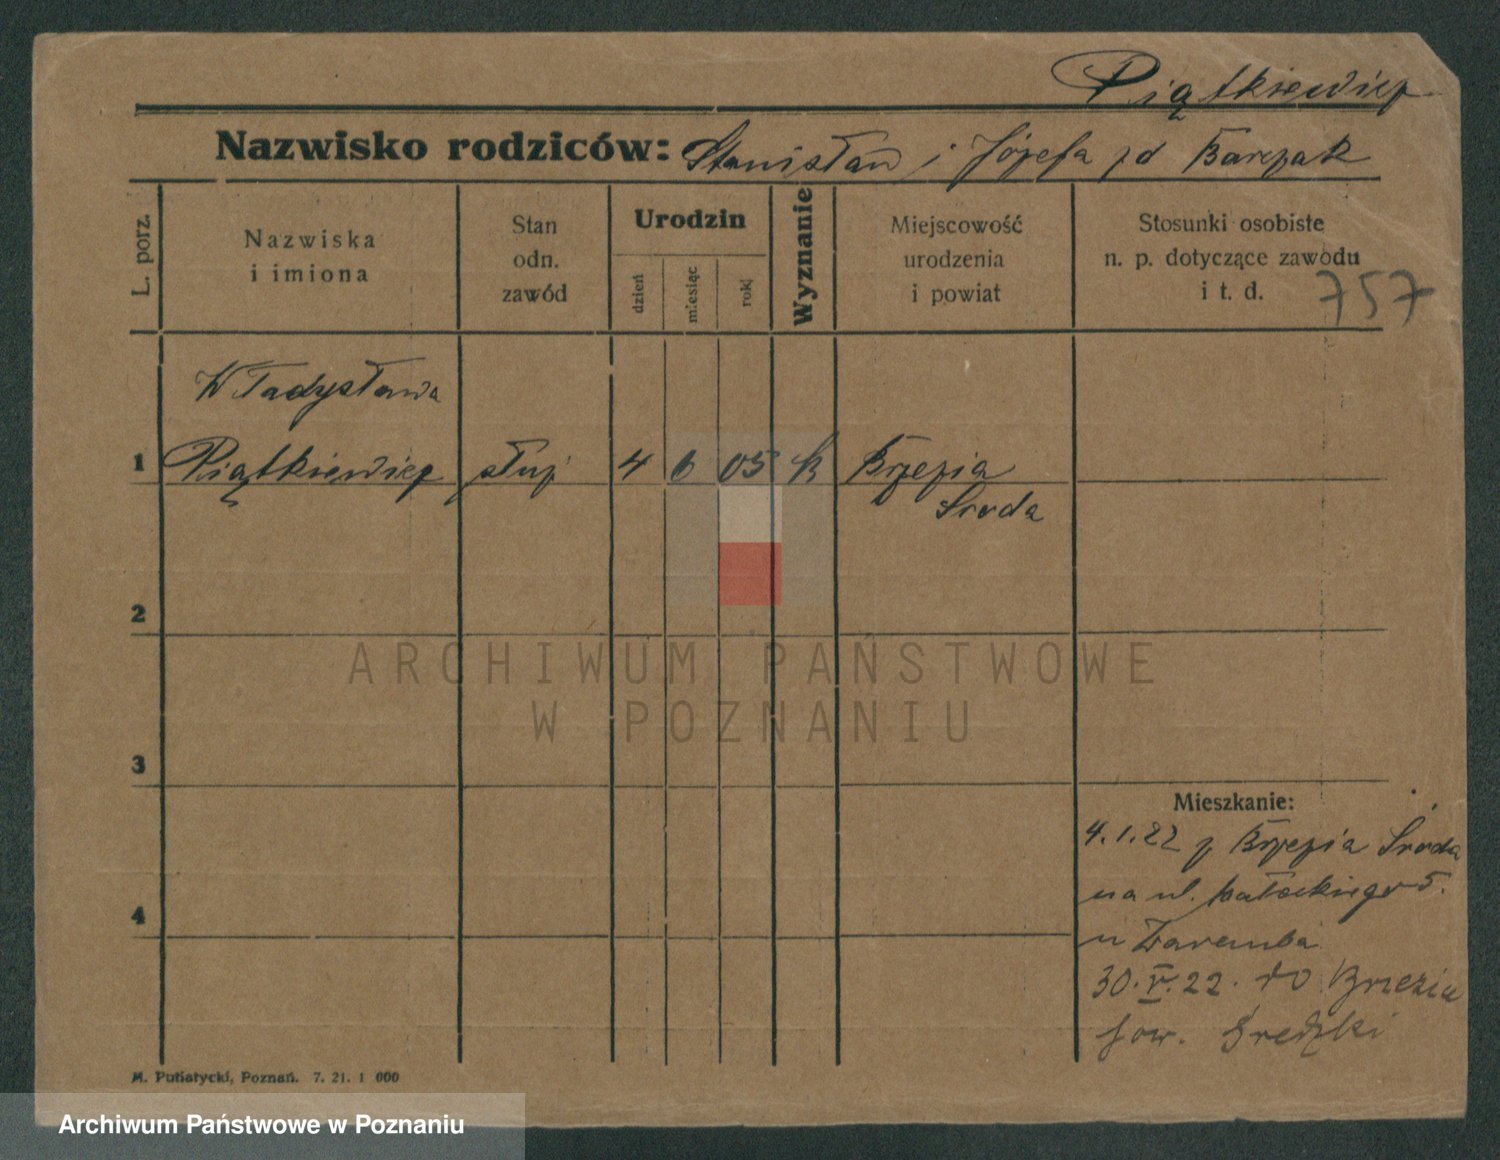 Piątkiewicz
Nazwisko rodziców: Stanisław i Józefa zd Barczak
L. porz.
Nazwiska
i imiona
Stan
odn.
zawód
Urodzin
dzień
miesiąc
rok
Wyznanie
Miejscowość
urodzenia
i powiat
Stosunki osobiste
n. p. dotyczące zawodu
i t. d.
757
Władysława
1 Piątkiewicz służ 4 6 05 k Brzezia
Środa
2
ARCHIWUM PAŃSTWOWE
W POZNANIU
3
Mieszkanie:
4.1.22 z Brzezia Środa
na ul. 5.
4
u Zaremba
30.V.22. do Brzezia
pow. Średzki
M. Putiatycki, Poznań. 7. 21. 1 000
Archiwum Państwowe w Poznaniu